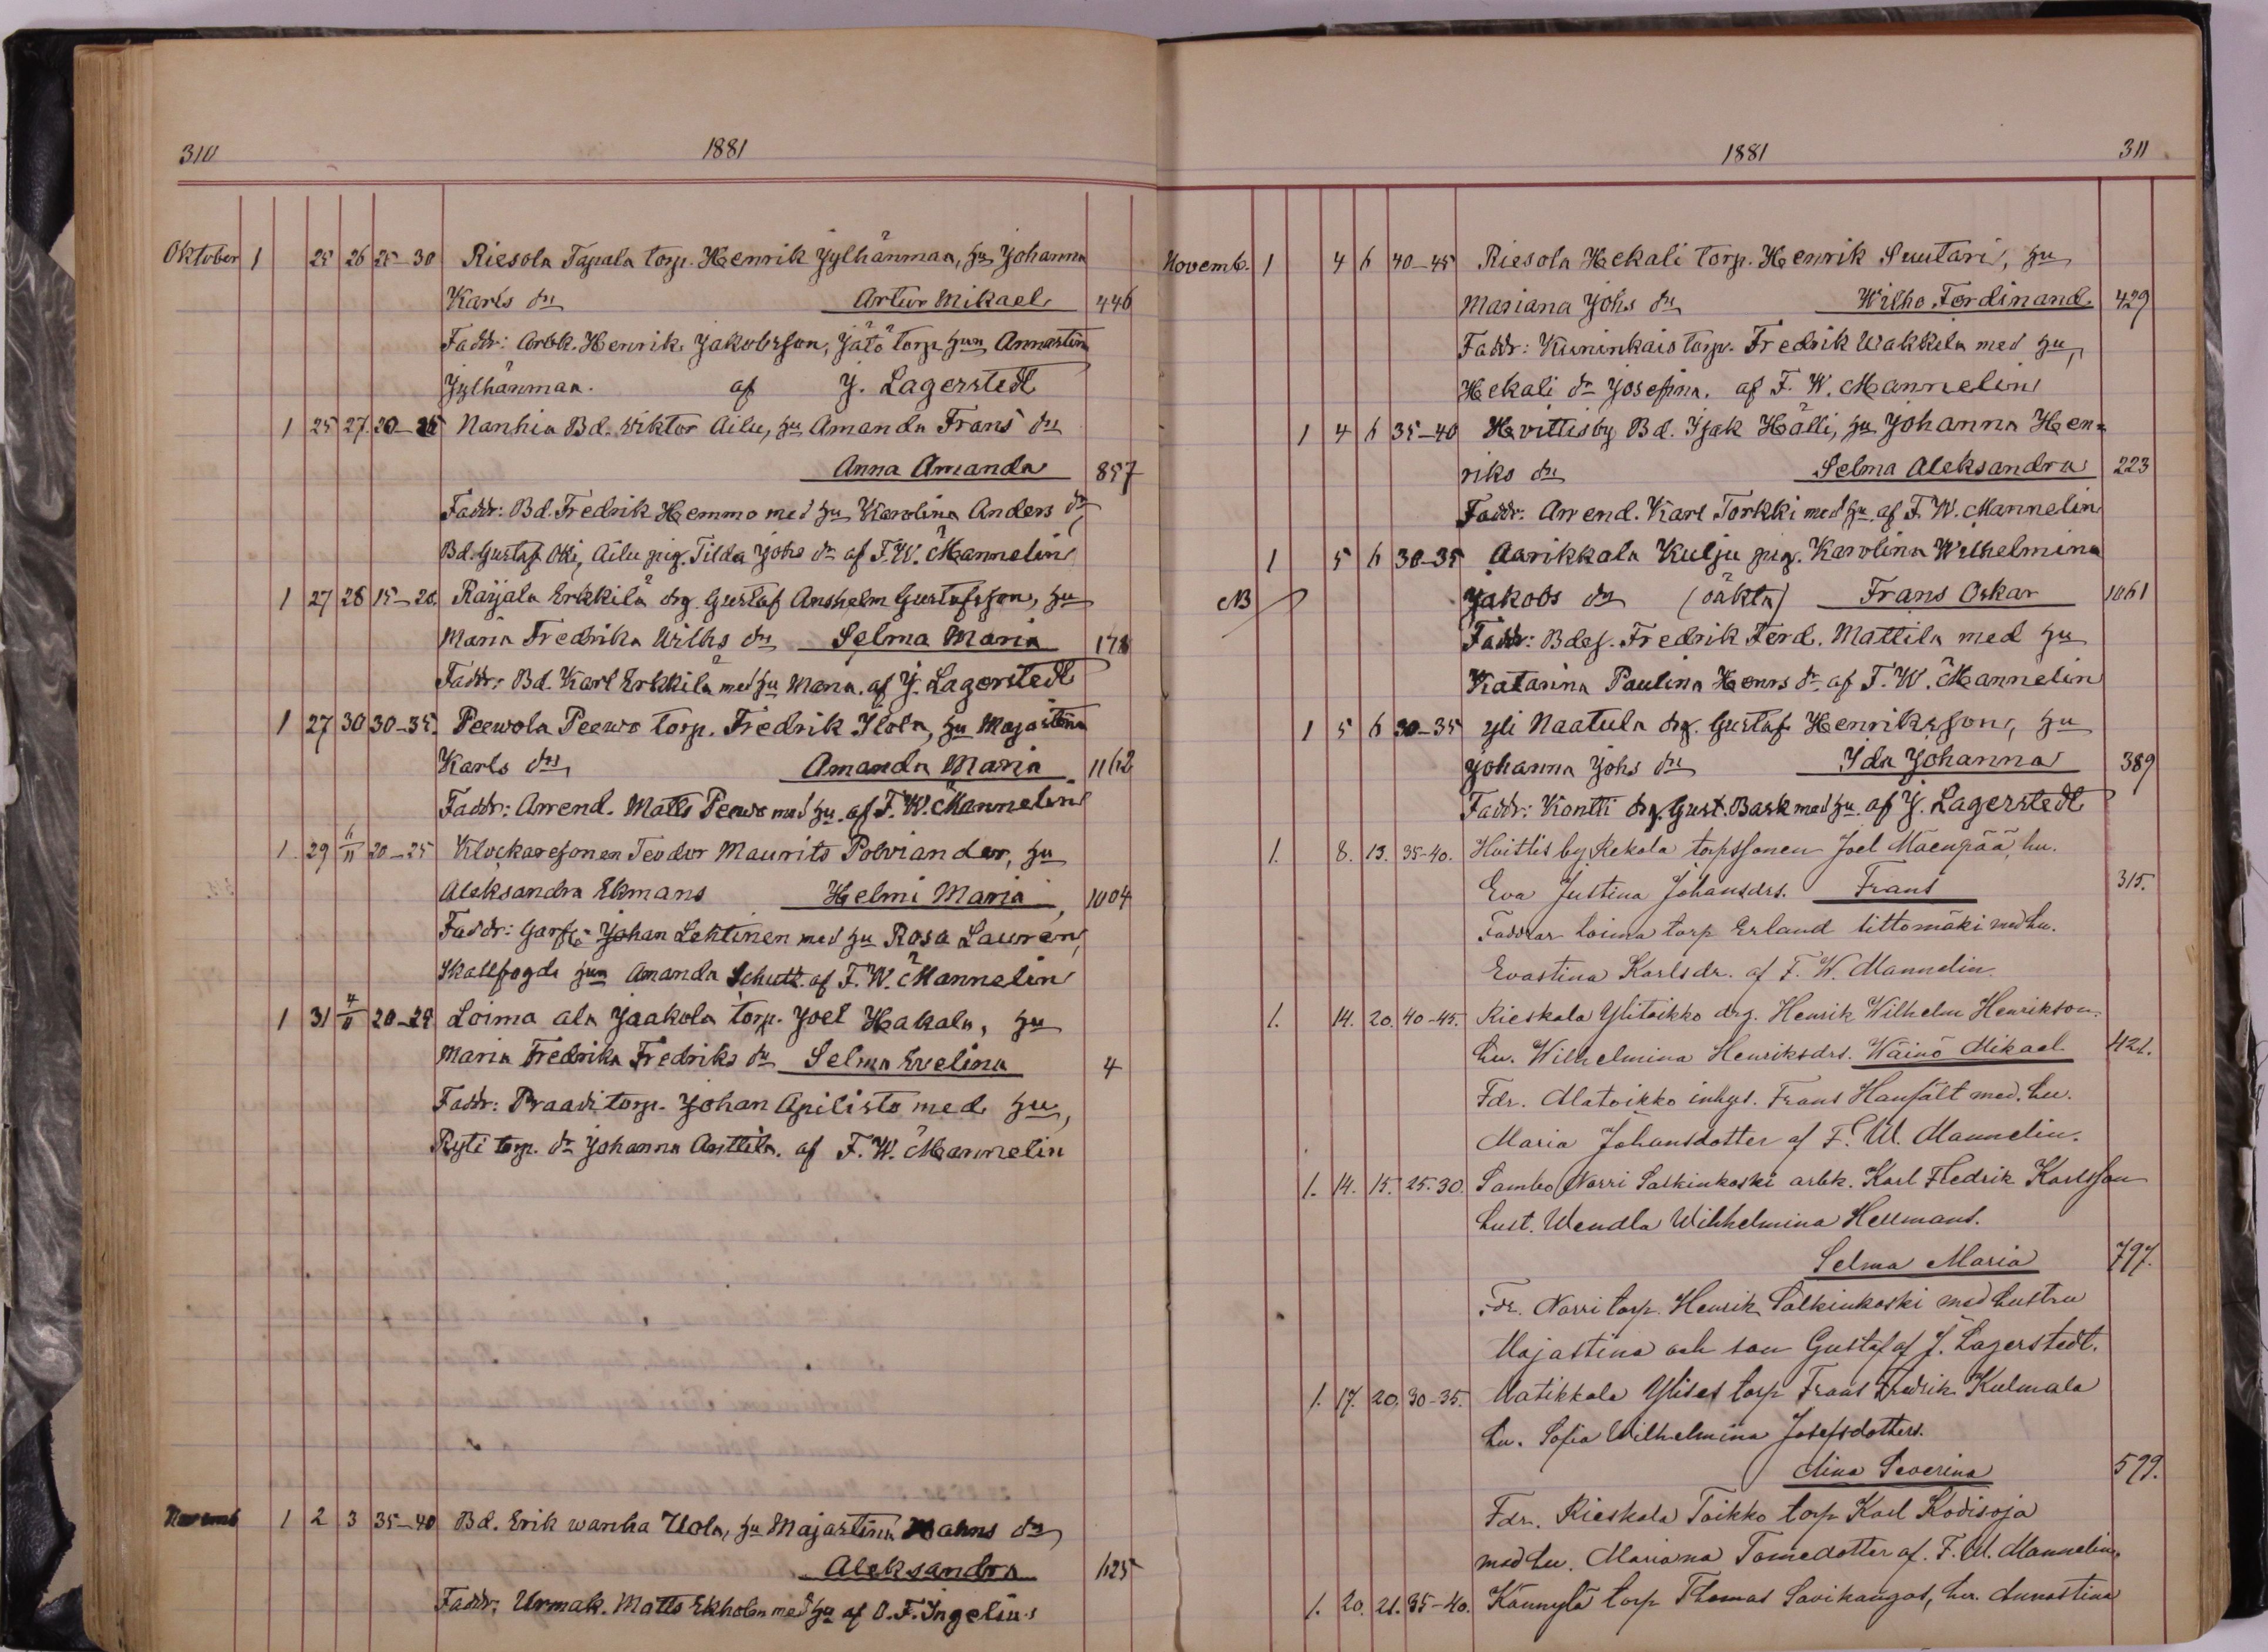 310 1881
Oktober 1 25 26 25-30 Riesola Tapala torp. Henrik Jylhänmaa, hu Johanna
Karls dr Artur Mikael 446
Faddr: Arbk. Henrik Jakobsson, torp hun Annastina
Jylhänmaa. af J. Lagerstedt
1 25 27. Nanhia Bd. Viktor Ailu, hu Amanda Frans dr
Anna Amanda 857
Faddr: Bd. Fredrik Hemmo med hu Karolina Anders dr,
Bd. Gustaf Oki, Ailu pig. Tilda Johs dr af F. W. Mannelin
1 27 28 15-20. Raijala Erkkilä drg. Gustaf Anshelm Gustafsson, hu
Maria Fredrika Wilhs dr Selma Maria
Faddr: Bd. Karl Erkkilä med hu Maria. af J. Lagerstedt
1 27 30 30-35. Peewola Peewo torp. Fredrik Ilola, hu Majastina
Karls dr Amanda Maria 1162
Faddr: Arrend. Matts Peewo med hu. af F. W. Mannelin
1 29 6/11 20-25 Klockaresonen Teodor Maurits Polviander, hu
Aleksandra Ekmans Helmi Maria, 1004
Faddr: Johan Lehtinen med hu Rosa Lauren,
Skallfogds hun Amanda Schutt. af F. W. Mannelin
1 31 4/11 Loima ala Jaakola torp. Joel Hakala, hu
Maria Fredrika Fredriks dr Selma Evelina 4
Faddr: Praadi torp. Johan Apilisto med hu,
Ryti torp. dr Johanna Anttila. af F. W. Mannelin
Novemb 1 2 3 35-40 Bd. Erik wanha Uola, hu Majastina dr
Aleksandra 625
Faddr: Urmak. Matts Ekholm med hu af O. F. Ingelius
1881 311
Novemb. 1 4 6 40-45 Riesola Hekali torp. Henrik Suutari, hu
Mariana Johs dr Wilho Ferdinand. 429
Faddr: Kuninkais torp. Fredrik Wakkila med hu,
Hekali dr Josefina. af F. W. Mannelin
1 4 6 35-40 Hvittisby Bd. Isak Hälli, hu Johanna Hen=
riks dr Selma Aleksandra 223
Faddr. Arrend. Karl Torkki med hu af F. W. Mannelin
1 5 6 30-35 Aarikkala Kulju pig. Karolina Wilhelmina
NB Jakobs dr (oäkta) Frans Oskar 1061
Faddr: Bdes. Fredrik Ferd. Mattila med hu
Katarina Paulina Henrs dr af F. W. Mannelin
1 5 6 30-35 Yli Naatula drg. Gustaf Henriksson, hu
Johanna Johs dr Ida Johanna 389
Faddr: Kontti drg. Gust. Bask med hu. af J. Lagerstedt
1. 8. 13. 35-40. Hvittis by Rekola torpssonen Joel Mäenpää, hu.
Eva Justina Johansdrs. Frans 315.
Faddrar Loima torp Erland Littomäki med hu.
Evastina Karlsdr. af F. W. Mannelin.
1. 14. 20. 40-45. Rieskala Ylitoikko drg. Henrik Wilhelm Henrikson.
hu. Wilhelmina Henriksdrs. Wäinö Mikael. 421.
Fdr. Alatoikko inhys. Frans Hanfält med. hu.
Maria Johansdotter af F. W. Mannelin.
1. 14. 15. 25-30. Sambo Norri Salkinkoski arbk. Karl Fredrik Karlsson
hust. Wendla Wilhhelmina Hellmans.
Selma Maria 797.
Fdr. Norri torp. Henrik Salkinkoski med hustru
Majastina och son Gustaf af J. Lagerstedt.
1. 17. 20. 30-35. Matikkala Ylises torp Frans Fredrik Kulmala
hu. Sofia Wilhelmina Josefsdotters.
Mina Severina 599.
Fdr. Rieskala Toikko torp Karl Kodisoja
med hu. Mariana Tomedotter af. F. W. Mannelin.
1. 20. 21. 35-40. Kännylä torp Thomas Savikangas, hu. Annastina